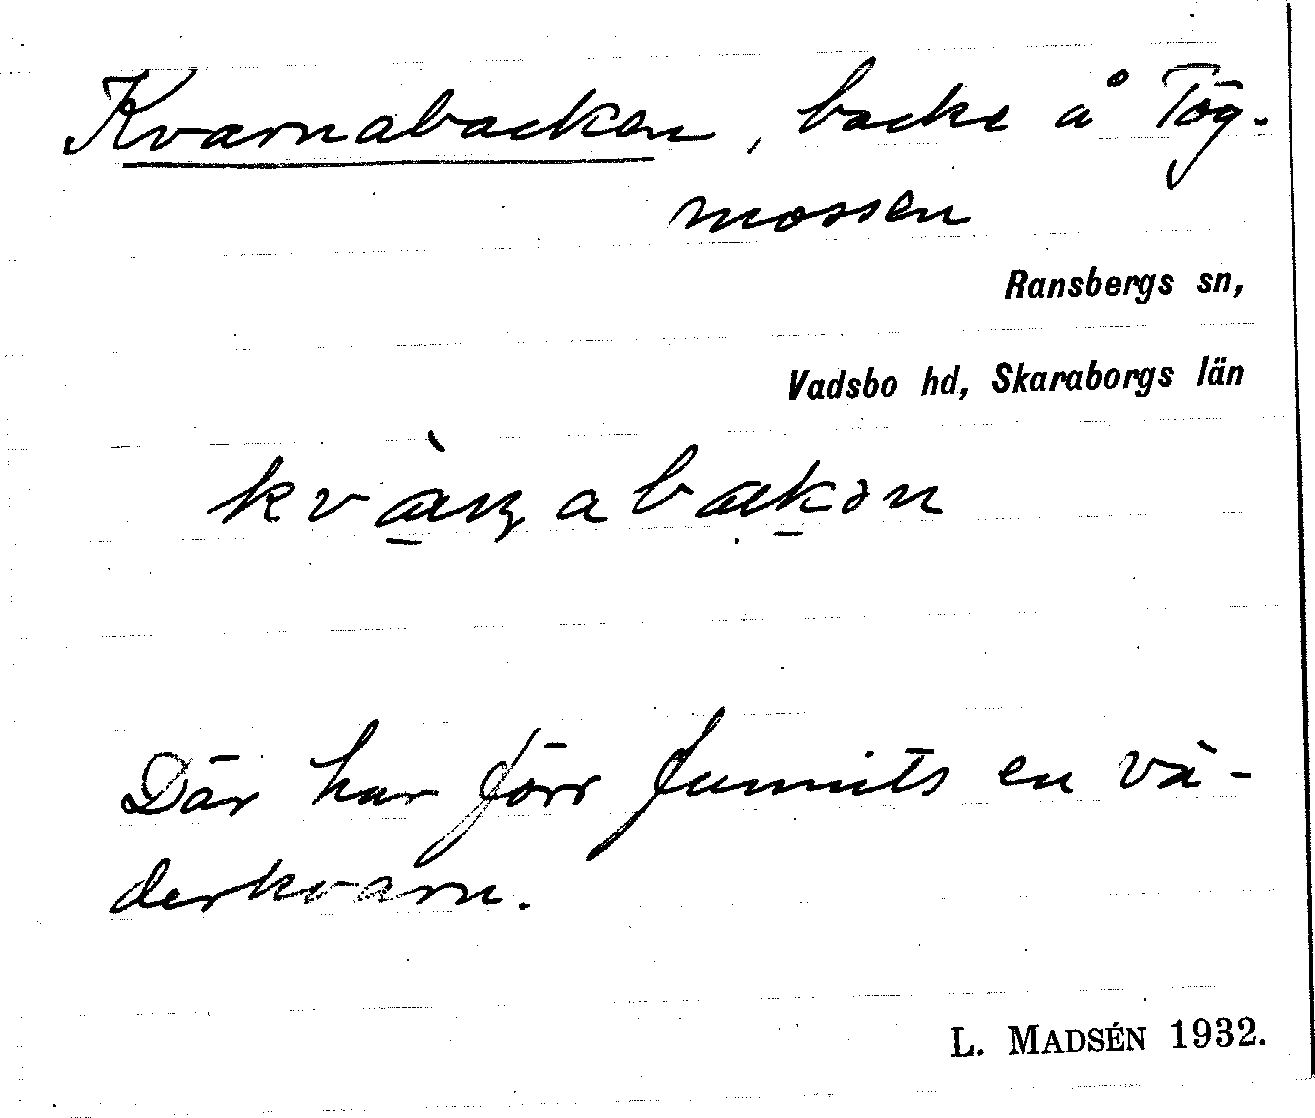 Kvarnabacken, backe å Tög-
mossen
Ransbergs sn,
Vadsbo hd, Skaraborgs län
Där har förr funnits en vä-
derkvarn.
L. MADSÉN 1932.